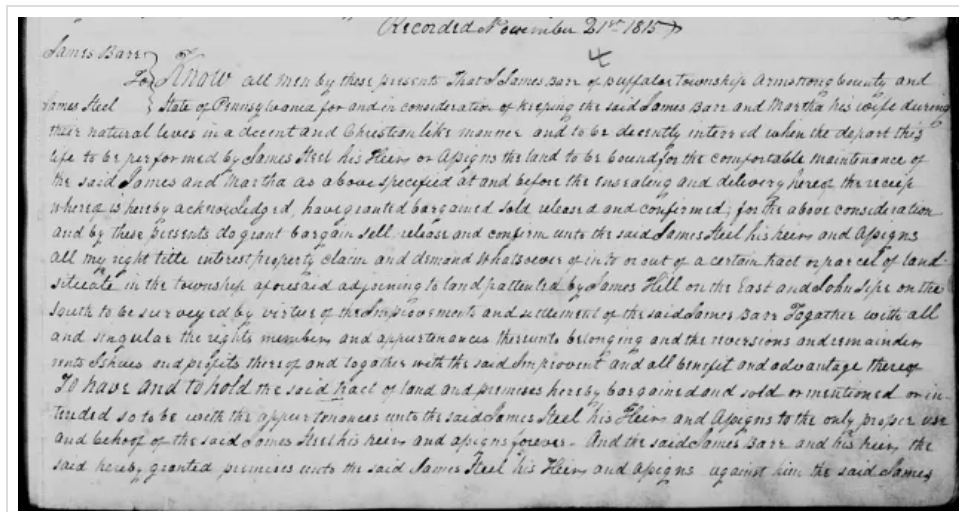 Recorded November 21st 1815
4
James Barr
To Know all men by these presents That I James Barr of Buffaloe Township Armstrong County and
James Steel State of Pennsylvania for and in consideration of keeping the said James Barr and Martha his wife during
their natural lives in a decent and Christian like manner and to be decently interred when the depart this
life to be performed by James Steel his Heirs or Assigns the land to be bound for the comfortable maintenance of
the said James and Martha as above specified at and before the ensealing and delivery hereof the receip
whereof is hereby acknowledged, have granted bargained sold released and confirmed, for the above consideration
and by these presents do grant bargain sell, release and confirm unto the said James Steel his heirs and Assigns
all my right title interest property claim and demand Whatsoever of in to or out of a certain tract or parcel of land
situate in the township aforesaid adjoining to land pattented by James Hill on the East and John Sipe on the
South to be surveyed by virtue of the Improvements and settlement of the said James Barr Together with all
and singular the rights members and appurtenances thereunto belonging and the reversions and remainders
rents Ishues and profits thereof and together with the said Improvent and all benefit and advantage thereof
To have and to hold the said tract of land and premises hereby bargained and sold or mentioned or in-
tended so to be with the appurtenances unto the said James Steel his Heirs and Assigns to the only proper use
and behoof of the said James Steel his heirs and assigns forever - And the said James Barr and his heirs the
said hereby granted premises unto the said James Steel his Heirs and Assigns against him the said James